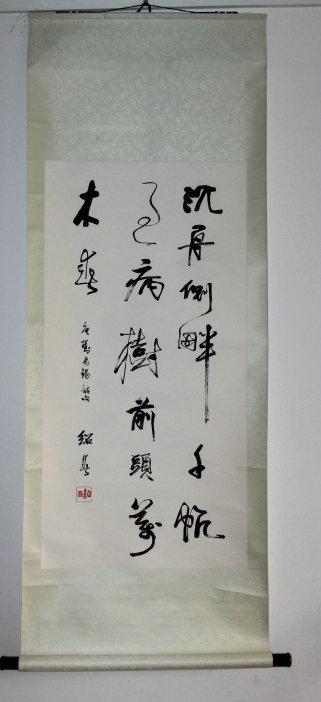 沉舟側畔千帆
過病樹前頭萬
木春 劉禹錫 紹